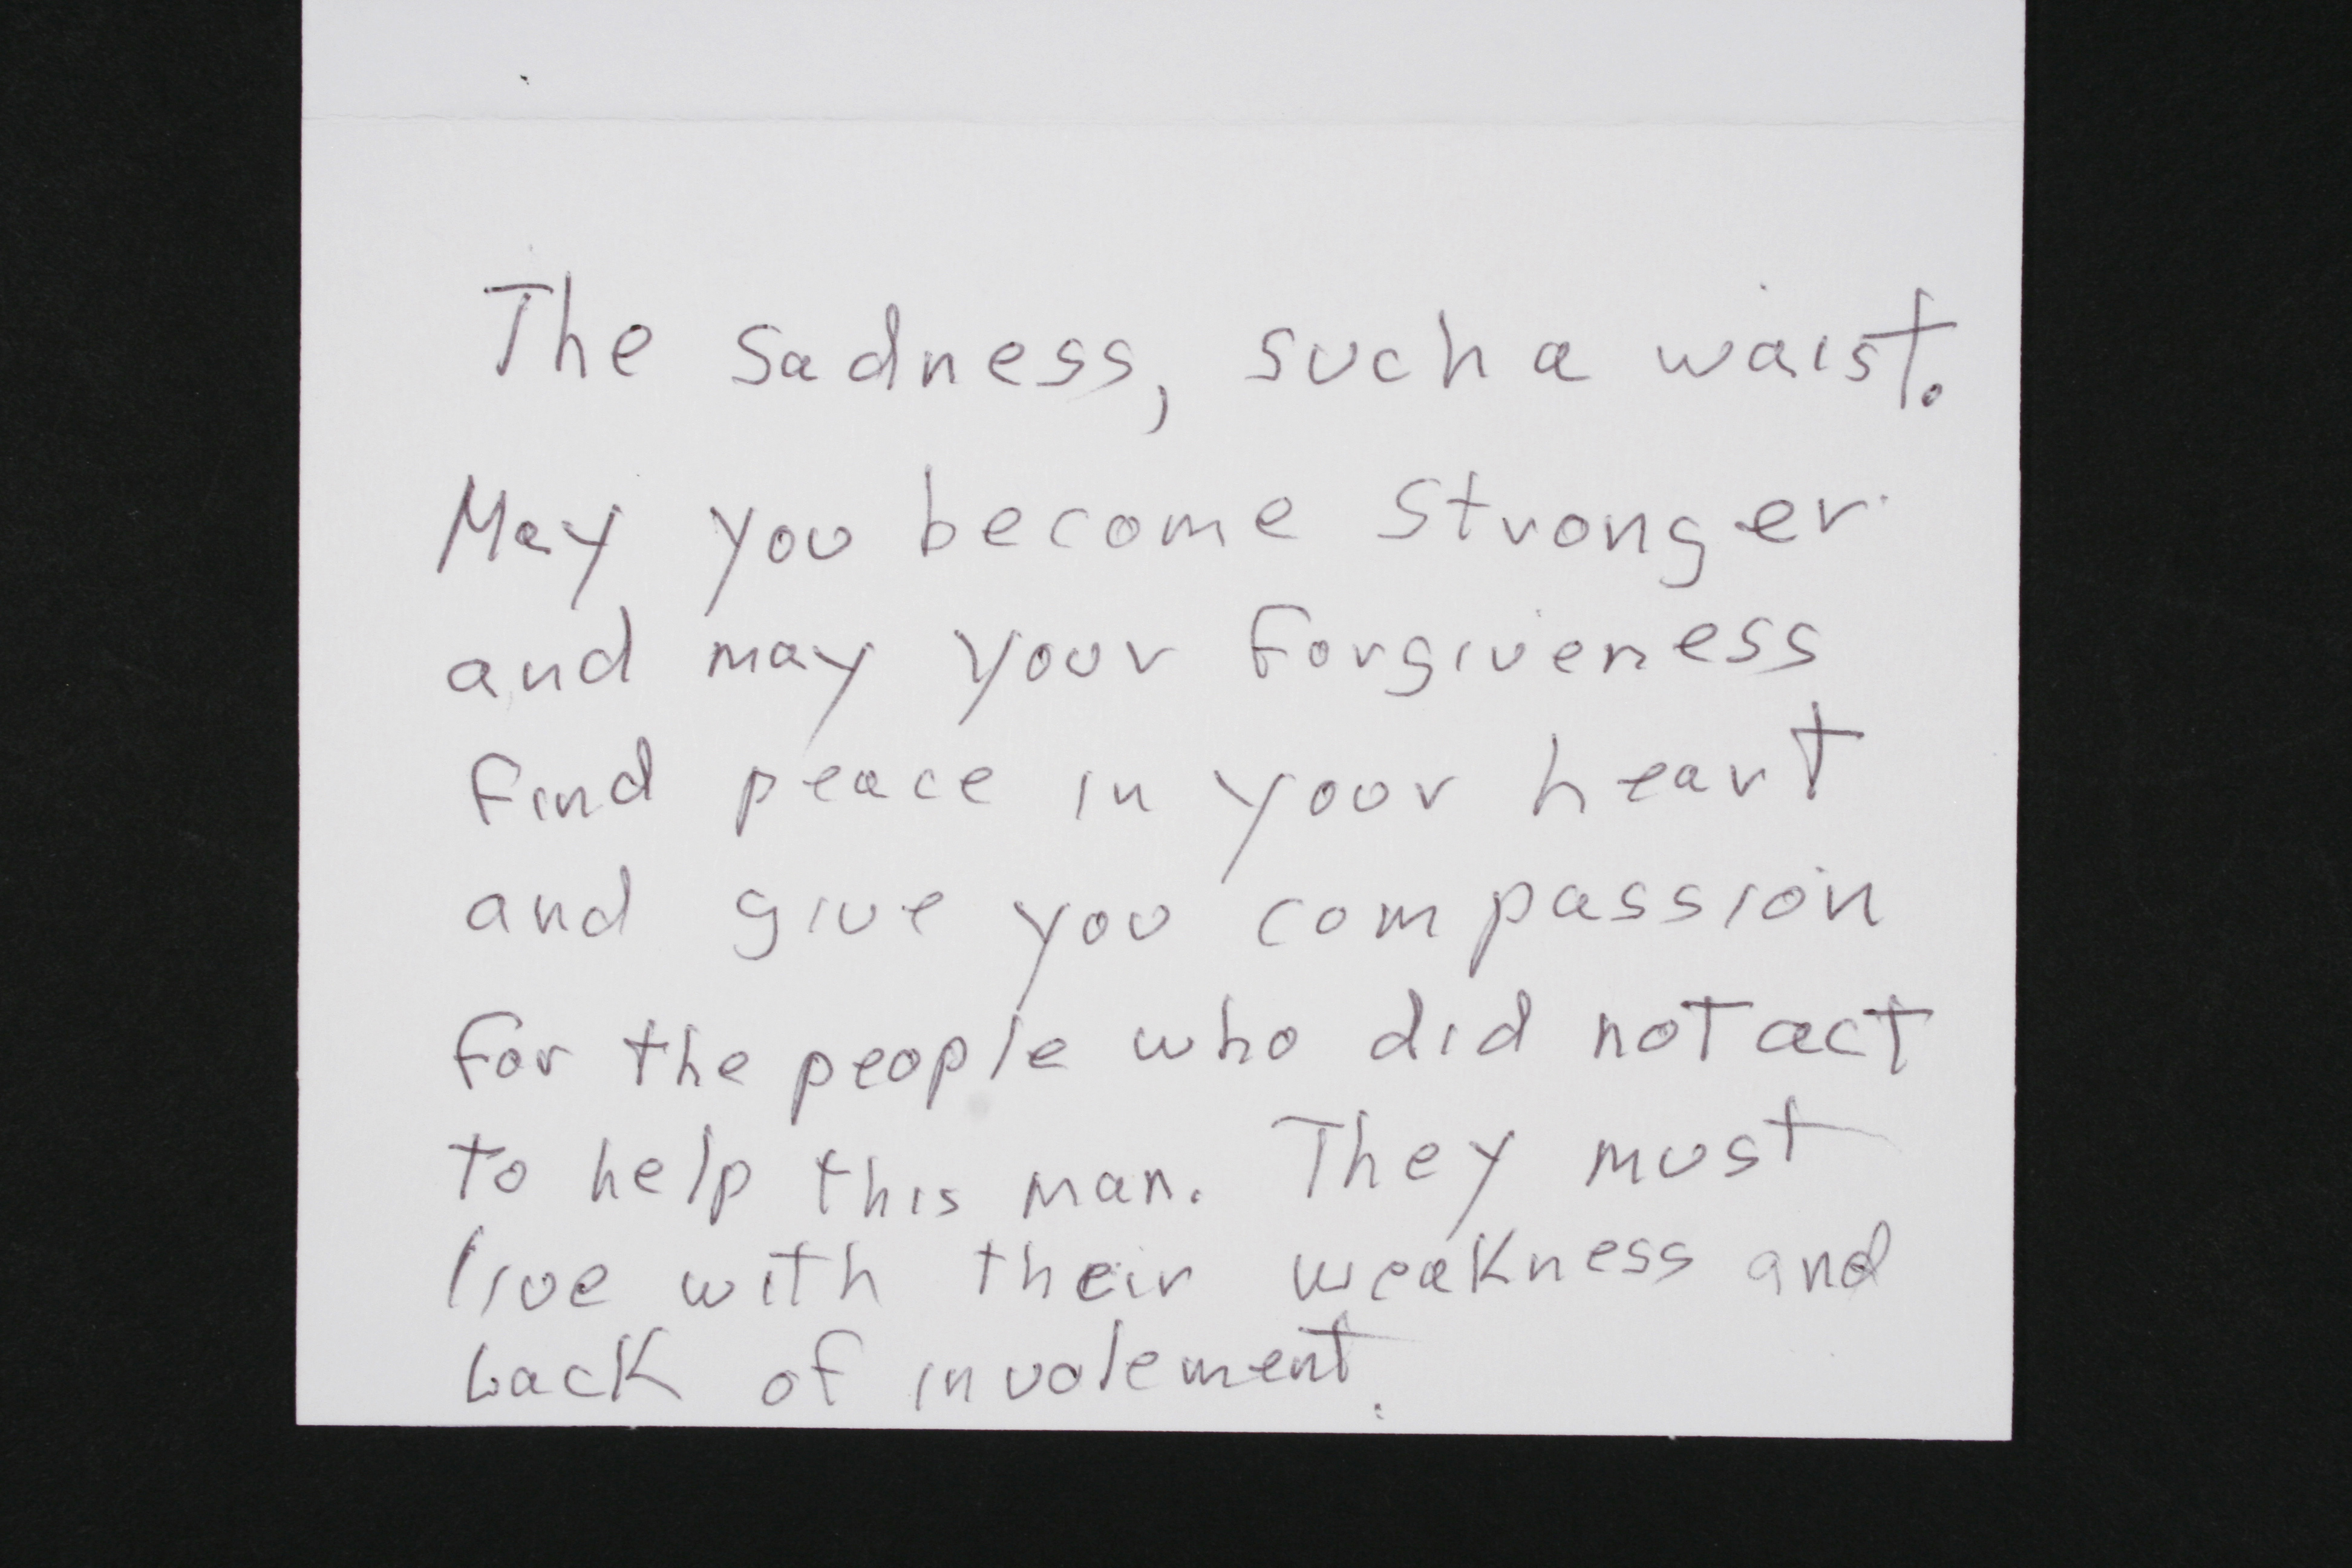 The sadness, such a waist.
May you become stronger
and may your forgiveness
find peace in yoor heart
and give you compassion
for the people who did not act
to help this man. They must
live with their weakness and
Lack of involement.